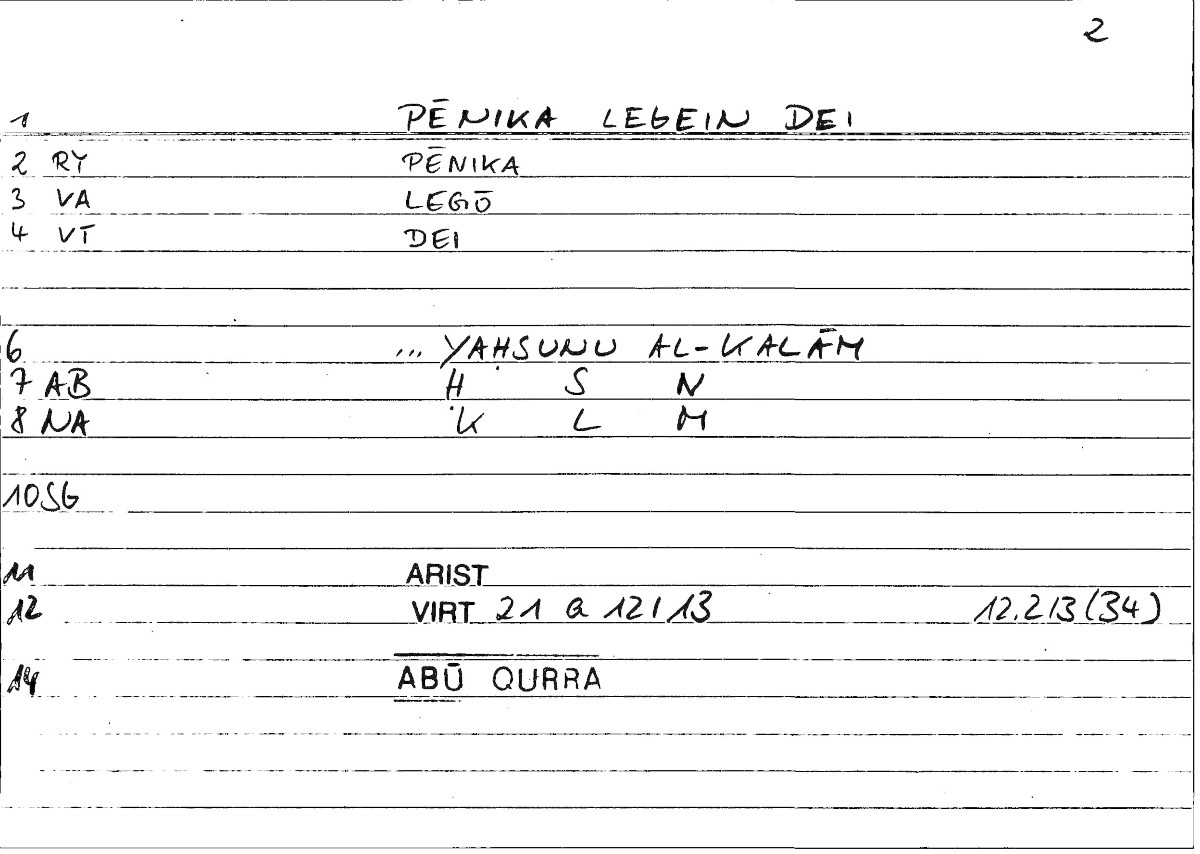 2
1 PĒNIKA LEGEIN DEI
2 RY PĒNIKA
3 VA LEGŌ
4 VT DEI
6 ... YAḤSUNU AL-KALĀM
7 AB Ḥ S N
8 NA K L M
10 SG
11 ARIST
12 VIRT 21 a 12/13 12.2/3 (34)
14 ABŪ QURRA